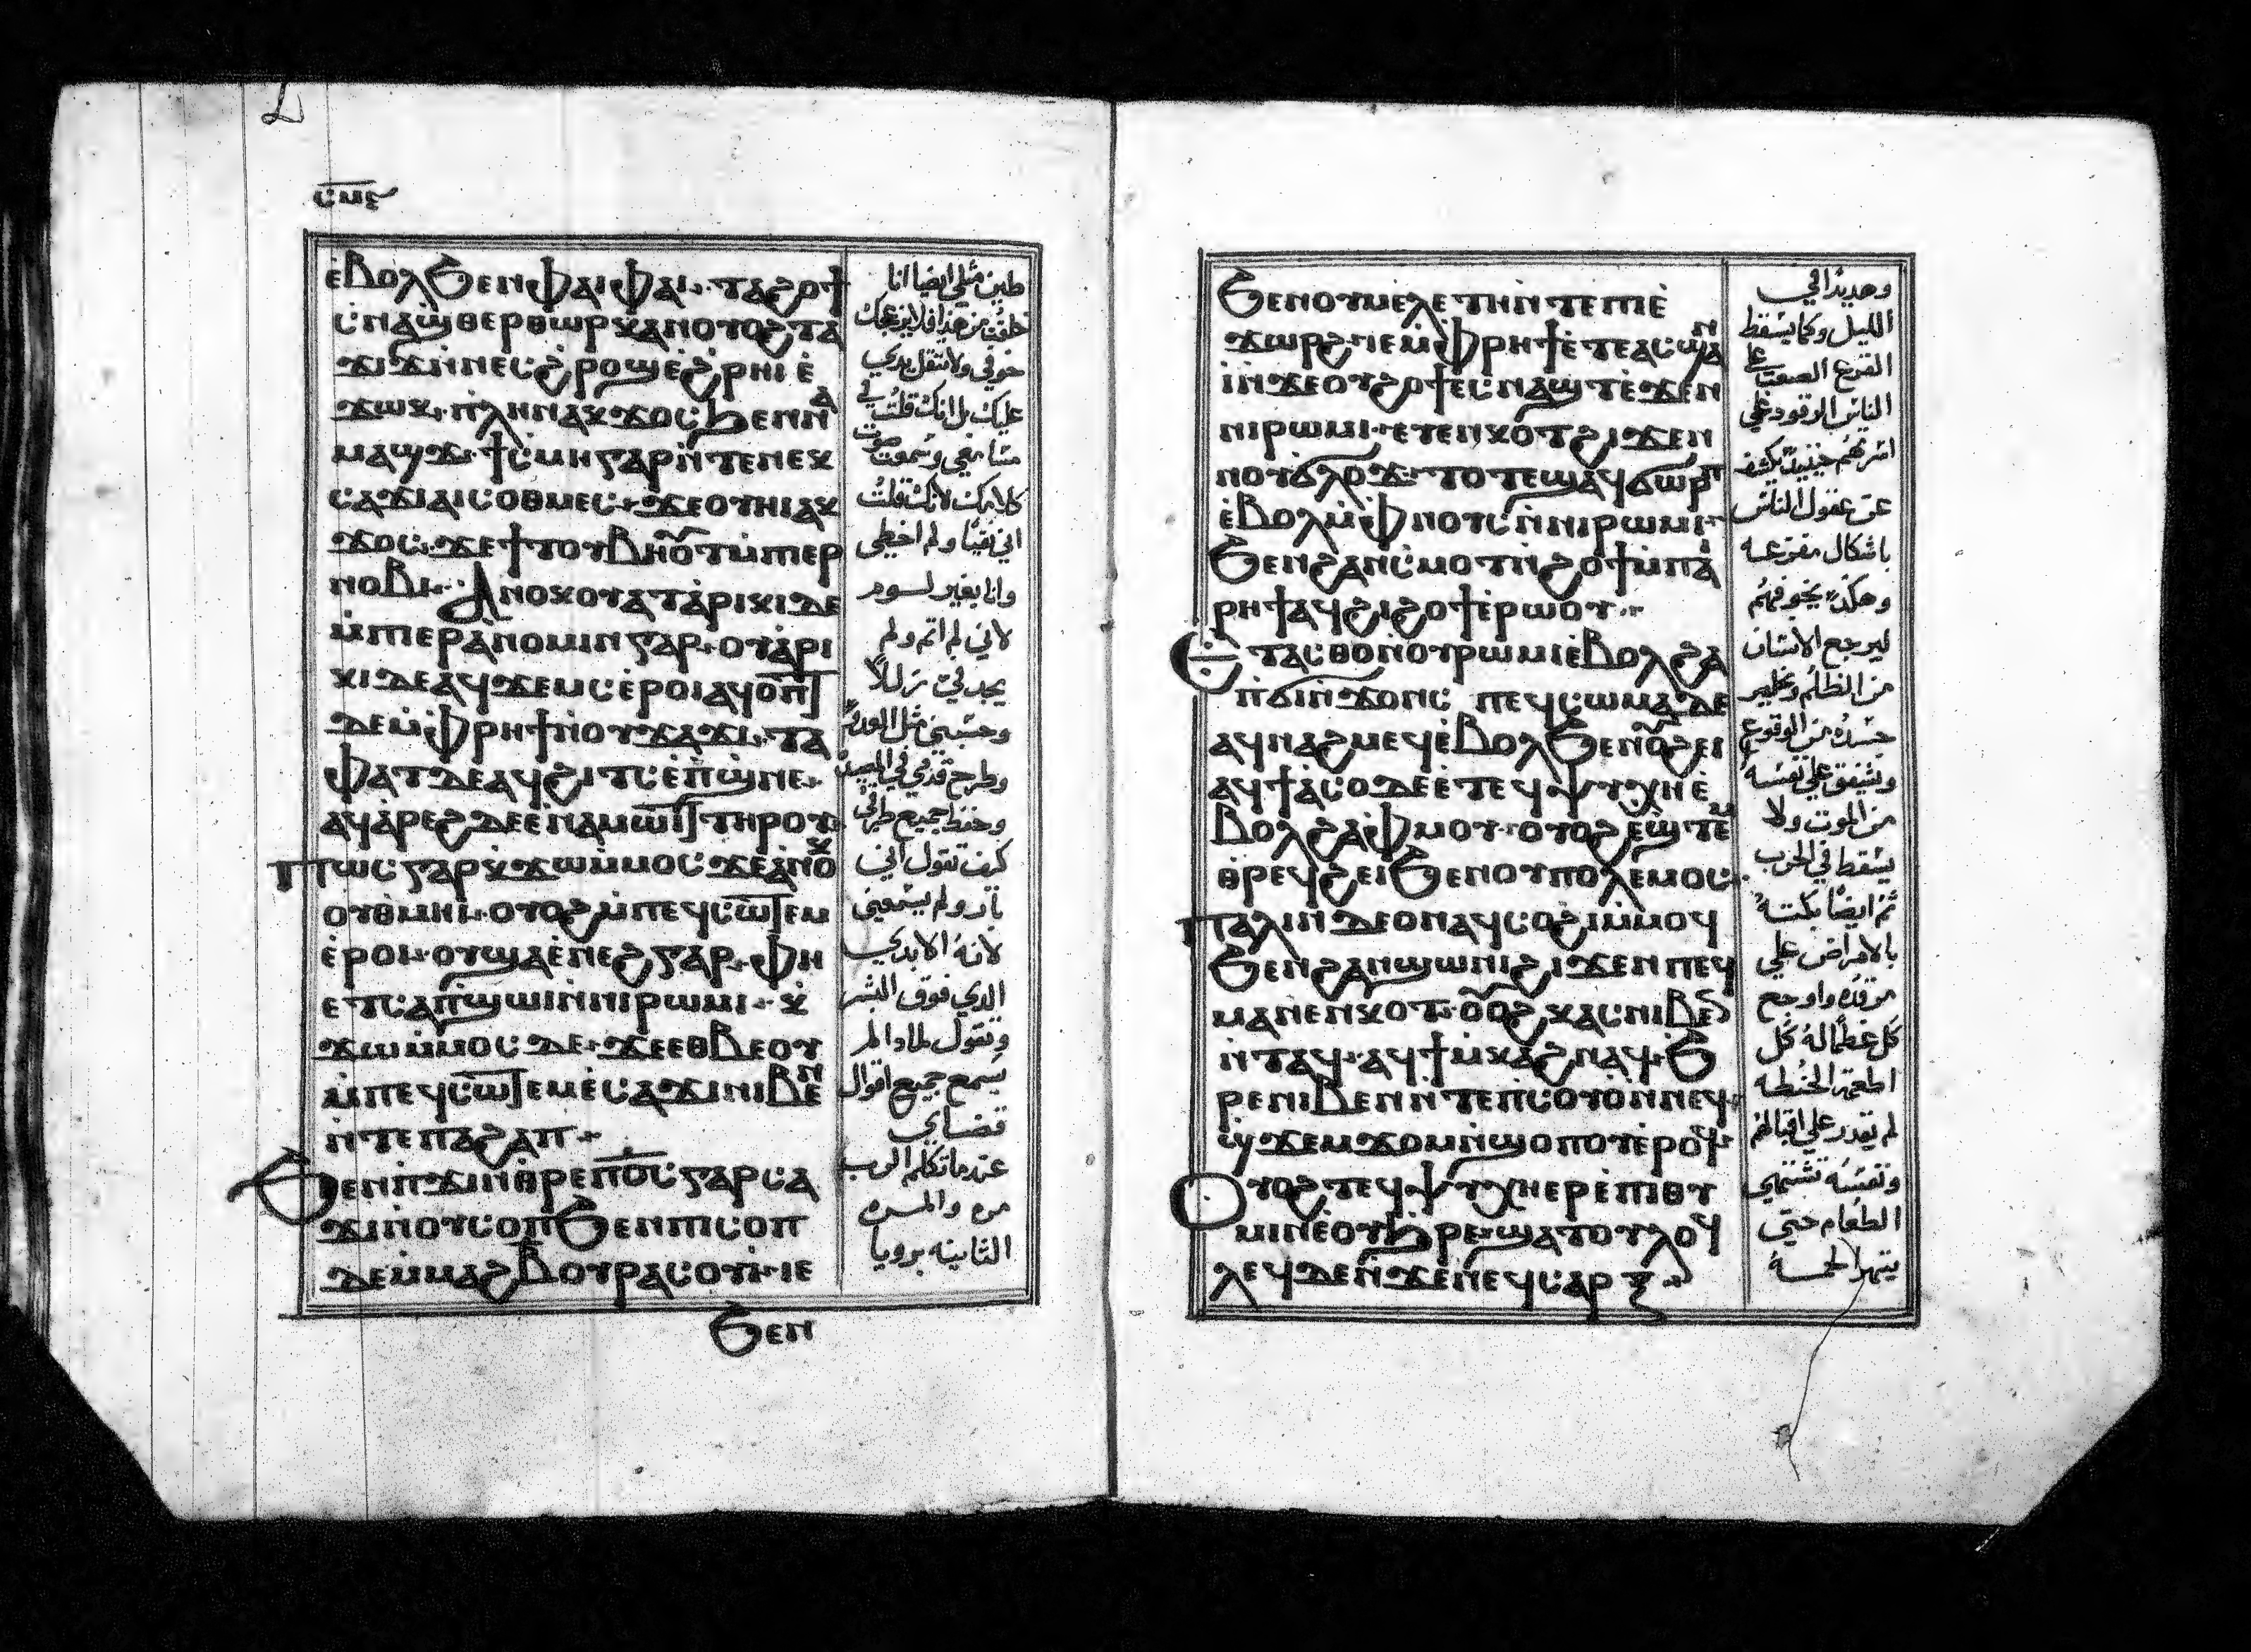 ⲥⲙⲋ
ⲉ̀ⲃⲟⲗϧⲉⲛⲫⲁⲓⲫⲁⲓ. ⲧⲁϩⲟϯ
ⲥⲛⲁϣⲑⲉⲣⲑⲱⲣⲕ̀ⲁⲛⲟⲩⲟϩⲧⲁ
ϫⲓϫⲛ̀ⲛⲉⲥϩ̀ⲣⲟϣⲉ̀ϩ̀ⲣⲏⲓ ⲉ̀
ϫⲱⲕ. ⲡⲗⲏⲛⲁⲕϫⲟⲥϧⲉⲛⲛⲁ
ⲙⲁϣϫ. ϯⲥⲙⲏⲅⲁⲣⲛ̀ⲧⲉⲛⲉⲕ
ⲥⲁϫⲓⲁⲓⲥⲟⲑⲙⲉⲥ. ϫⲉⲟⲩⲏⲓⲁⲕ
ϫⲟⲥ. ϫⲉϯⲧⲟⲩⲃⲏⲟⲩⲧⲙ̀ⲡⲉⲣ
ⲛⲟⲃⲓ. ⲁⲛⲟⲕⲟⲩⲁⲧⲁ̀ⲣⲓⲕⲓⲇⲉ
ⲙ̀ⲡⲉⲣⲁ̀ⲛⲟⲙⲓⲛⲅⲁⲣ. ⲟⲩⲁ̀ⲣⲓ
ⲕⲓⲇⲉⲁϥϫⲉⲙⲥⲉ̀ⲣⲟⲓⲁϥⲟⲡⲧ
ⲇⲉⲙ̀ⲫⲣⲏϯⲛ̀ⲟⲩϫⲁϫⲓ. ⲧⲁ
ⲫⲁⲧⲇⲉⲁϥϩⲓⲧⲥⲉ̀ⲡϣⲛⲉ.
ⲁϥⲁ̀ⲣⲉϩⲇⲉⲉ̀ⲛⲁⲙⲱⲓⲧⲧⲏⲣⲟⲩ
ⲡⲱⲥⲅⲁⲣⲕ̀ϫⲱⲙ̀ⲙⲟⲥϫⲉⲁⲛⲟⲕ
ⲟⲩⲑⲙⲏⲓ. ⲟⲩⲟϩⲙ̀ⲡⲉϥⲥⲱⲧⲉⲙ
ⲉ̀ⲣⲟⲓ. ⲟⲩϣⲁⲉ̀ⲛⲉϩⲅⲁⲣ. ⲫⲏ
ⲉⲧⲥⲁⲡ̀ϣⲱⲓⲛ̀ⲛⲓⲣⲱⲙⲓ. ⲕ̀
ϫⲱⲙ̀ⲙⲟⲥⲇⲉ. ϫⲉⲉⲑⲃⲉⲟⲩ
ⲙ̀ⲡⲉϥⲥⲱⲧⲉⲙⲉ̀ⲥⲁϫⲓⲛⲓⲃⲉⲛ
ⲛ̀ⲧⲉⲡⲁϩⲁⲡ.
ϧⲉⲛⲡ̀ϫⲓⲛⲑ̀ⲣⲉⲡⲟ̅ⲥ̅ⲅⲁⲣⲥⲁ
ϫⲓⲛ̀ⲟⲩⲥⲟⲡϧⲉⲛⲡⲓⲥⲟⲡ
ⲇⲉⲙ̀ⲙⲁϩⲃⲟⲩⲣⲁⲥⲟⲩⲓ̀. ⲓⲉ
ϧⲉⲛ
طين مثلي ايضا انا
خلقت من هذا فلا يزعجك
خوفي ولا تثقل يدي
عليك بل انك قلت في
مسامعي وسمعت صوت
كلامك لانك قلت
اني نقيًا ولم اخطي
وانا بغير لسوم
لاني لم اثم ولم
يجد في زللاً
وحسبني مثل العدو
وطرح قدمي في
وحفظ جميع طرقي
كيف تقول اني
بار ولم يسمعني
لانه الابدي
الدي فوق البشر
وتقول لمادا لم
يسمع جميع اقوال
قضاي
عندما تكلم الرب
مره والمره
الثانيه برويا
ϧⲉⲛⲟⲩⲙⲉⲗⲉⲧⲏⲛ̀ⲧⲉⲡⲓⲉ̀
ϫⲱⲣϩ. ⲛⲉⲙⲫⲣⲏϯⲉ̀ⲧⲉⲁⲥϣⲁⲛ
ⲓ̀ⲛ̀ϫⲉⲟⲩϩⲟϯⲉⲥⲛⲁϣⲧⲉ̀ϫⲉⲛ
ⲛⲓⲣⲱⲙⲓ. ⲉⲧⲉⲛⲕⲟⲧϩⲓϫⲉⲛ
ⲛⲟⲩϭⲗⲟϫ. ⲧⲟⲧⲉϣⲁϥϭⲱⲣⲡ
ⲉ̀ⲃⲟⲗⲙ̀ⲫⲛⲟⲩⲥⲛ̀ⲛⲓⲣⲱⲙⲓ.
ϧⲉⲛϩⲁⲛⲥⲙⲟⲧⲛ̀ϩⲟϯⲙ̀ⲡⲁⲓ
ⲣⲏϯⲁϥϩⲓϩⲟϯⲉ̀ⲣⲱⲟⲩ.
ⲉⲧⲁⲥⲑⲟⲛ̀ⲟⲩⲣⲱⲙⲓⲉ̀ⲃⲟⲗϩⲁ
ⲡ̀ϭⲓⲛ̀ϫⲟⲛⲥ ⲡⲉϥⲥⲱⲙⲁⲇⲉ
ⲁϥⲛⲁϩⲙⲉϥⲉ̀ⲃⲟⲗϧⲉⲛⲟⲩϩⲉⲓ
ⲁϥϯⲁ̀ⲥⲟⲇⲉⲉ̀ⲧⲉϥⲯⲩⲭⲏⲉ̀
ⲃⲟⲗϩⲁⲫ̀ⲙⲟⲩ. ⲟⲩⲟϩⲉ̀ϣⲧⲉⲙ
ⲑ̀ⲣⲉϥϩⲉⲓϧⲉⲛⲟⲩⲡⲟⲗⲉⲙⲟⲥ.
ⲡⲁⲗⲓⲛⲇⲉⲟⲛⲁϥⲥⲟϩⲓⲙ̀ⲙⲟϥ
ϧⲉⲛϩⲁⲛϣⲱⲛⲓϩⲓϫⲉⲛⲡⲉϥ
ⲙⲁⲛⲉⲛⲕⲟⲧ. ⲟⲩⲟϩⲕⲁⲥⲛⲓⲃⲉⲛ
ⲛ̀ⲧⲁϥ. ⲁϥϯⲙ̀ⲕⲁϩⲛⲁϥ. ϧ
ⲣⲉⲛⲓⲃⲉⲛⲛ̀ⲧⲉⲡⲥⲟⲩⲟ̀ⲛ̀ⲛⲉϥ
ϣϫⲉⲙϫⲟⲙⲛ̀ϣⲟⲡⲟⲩⲉ̀ⲣⲟϥ.
ⲟⲩⲟϩⲧⲉϥⲯⲩⲭⲏⲉⲣⲉ̀ⲡⲓⲑⲩ
ⲙⲓⲛⲉ̀ⲟⲩϧ̀ⲣⲉ. ϣⲁⲧⲟⲩⲗⲟϥ
ⲗⲉϥⲇⲉⲛ̀ϫⲉⲛⲉϥⲥⲁⲣⲝ
وهديدًا في
الليل وكما يسقط
الفزع الصعب علي
الناس الرقود علي
اسرتهم حينيدٍ يكشف
عن عقول الناس
باشكال مفزعه
وهكذا يخوفهم
ليرجع الانسان
من الظلم ويخلص
جسده من الوقوع
ويشفق علي نفسه
من الموت ولا
يسقط في الحرب
ثم ايضًا بكته
بالامراض علي
مرقده واوجع
كل عظامه كل
اطعمة الحنطه
لم يقدر علي اقبالهم
ونفسه تشتهي
الطعام حتي
يتهرا لحمه